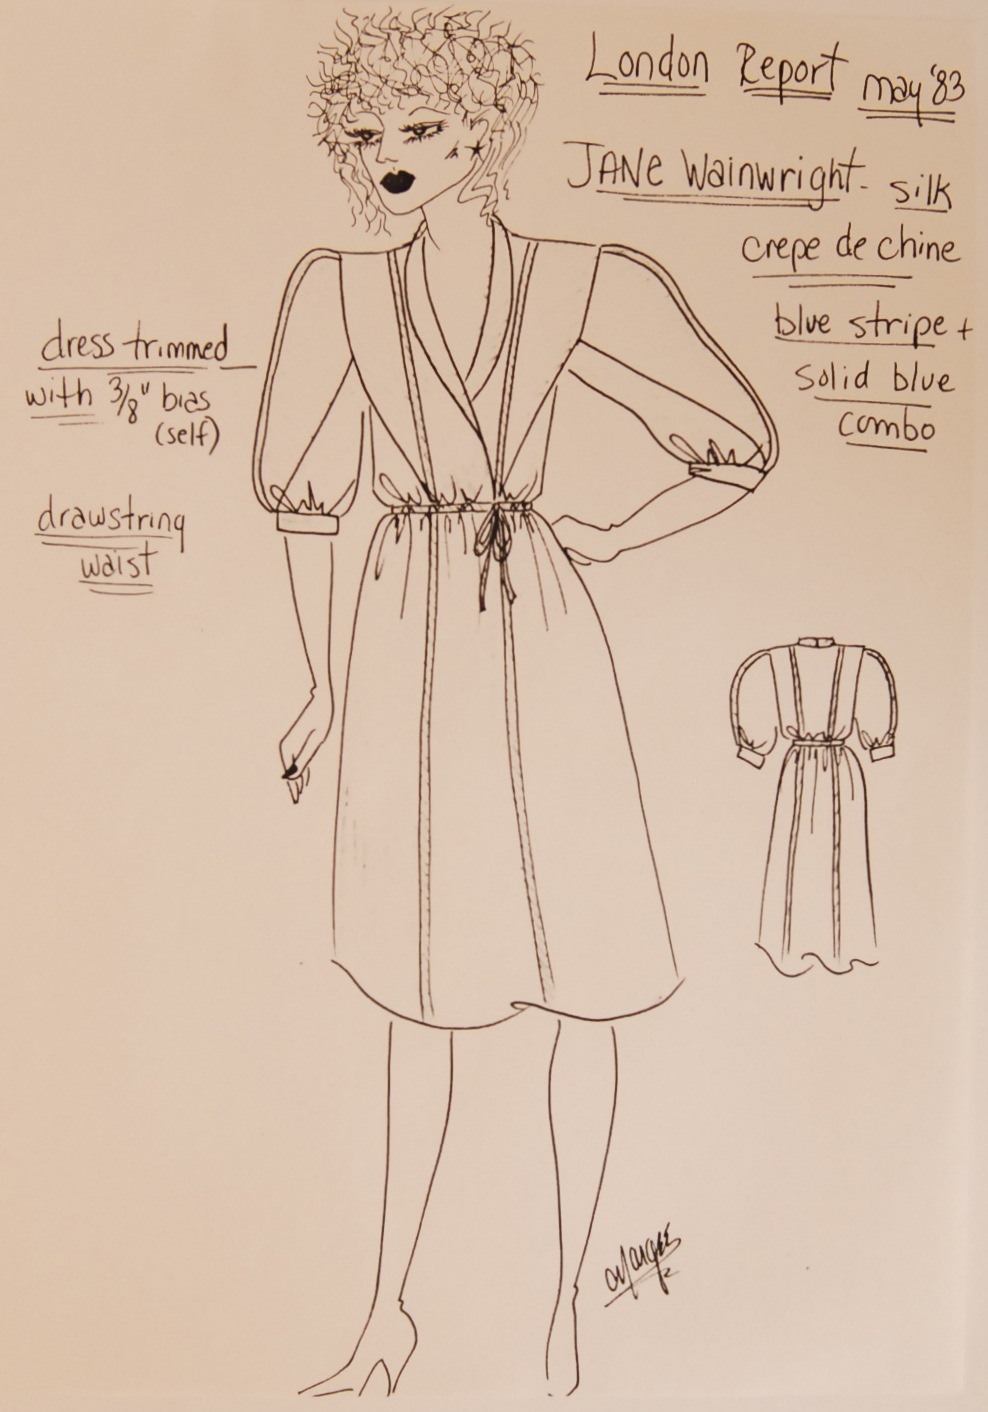 London Report may '83
JANE Wainwright - silk
crepe de chine
blue stripe +
solid blue
combo
dress trimmed
with 3/8" bias
(self)
drawstring
waist